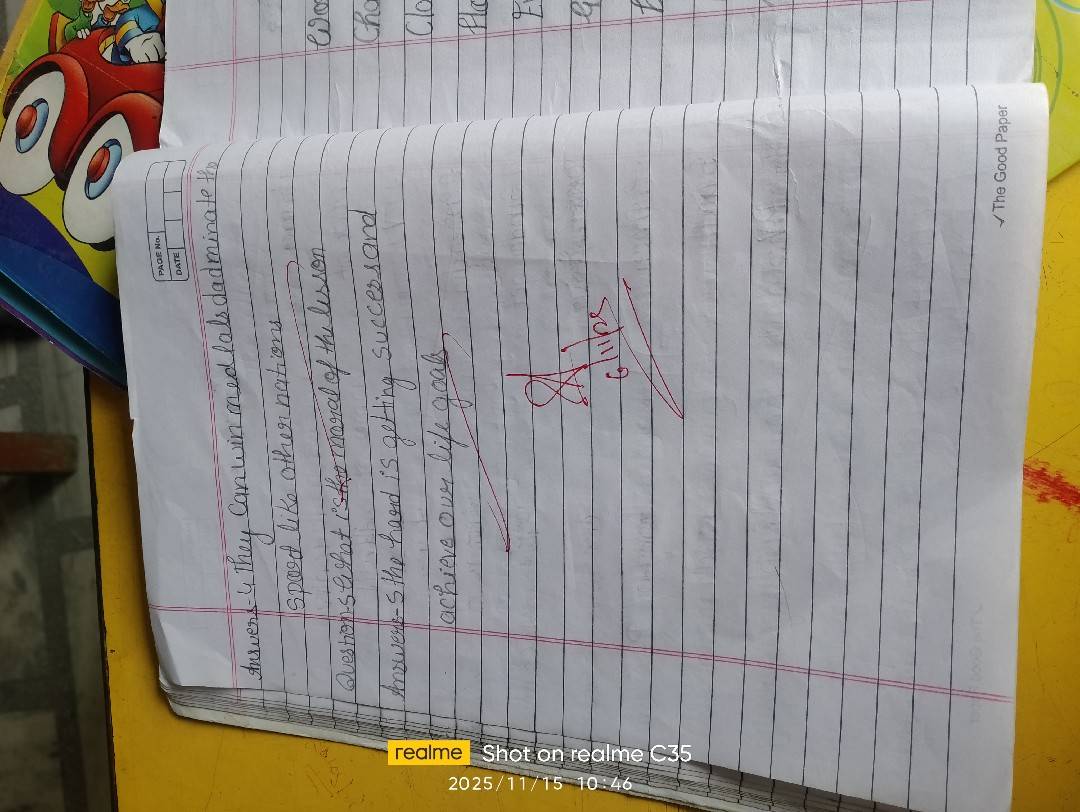 Woo
Cha
Clo
PAGE No.
DATE
Answers-4 They can win medals dadminate the
spord like other nations
Question-5 what is the moral of the lesson
Answers-5 the hard is getting success and
achieve our life goals
✓The Good Paper
realme Shot on realme C35
2025/11/15 10:46